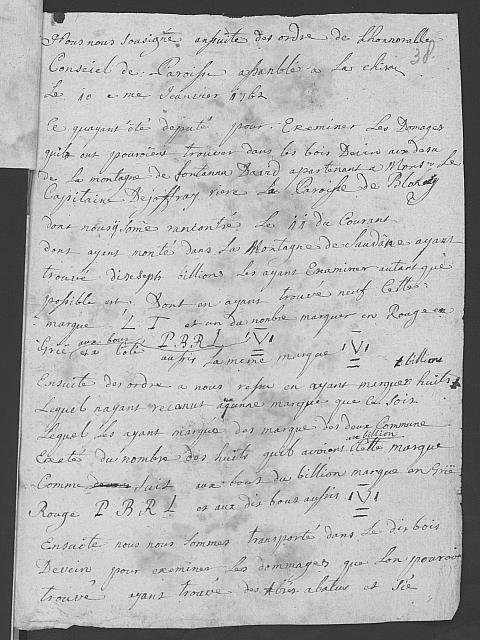 38
Nous nous Sousigné ansuite des ordre de Lhonnorable
Conseiel de Paroisse assanblé a La chiesa
Le 10 e me Jeanvier 1762
Ce quayant été deputé pour Examiner Les Domages
quils ont pouroient trouver dans les bois Devin audessu
de la montagne de fontanna David apartenant a Monsr Le
Capitaine Dejoffray riere La Paroisse de Blonay
dont nous some rancontré Le 11 du Courant
dont ayent monté dans la Montagne de Saudane ayant
trouvé diseseph billions Les ayant Examiner autant que
possible est Dont en ayant trouvé neuf Cette
marque L I et un du nonbre marquer en Rouge en
Grië aux bous P B R L V
et a coté aussis la meme marque V
4 billions
Ensuite des ordre a nous refsu en ayant merquer huits
Lequel nayant reconut aqunne marque que Ce Soit
Lequel Les ayant marque des marque des deux Commune
Exeté du nombre des huits quil avoient Cette marque
aux billion
Comme Suit aux bous du billion marque en Grië
Rouge P B R L et aux dis bous aussis V
Ensuite nous nous sommes transporté dans Le dis bois
Devein pour examiner Les dommages que Lon pouroit
trouvé ayant trouvé des Abres abatus et Sië